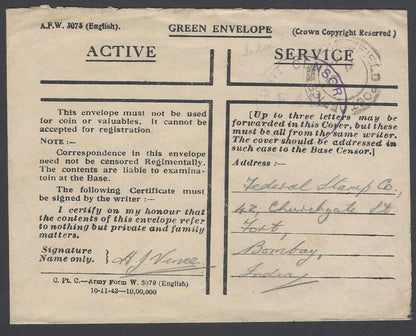 A.F.W. 3078 (English).
GREEN ENVELOPE
(Crown Copyright Reserved )
ACTIVE
SERVICE
This envelope must not be
used for coin or valuables. It cannot be
accepted for registration.
NOTE :—
Correspondence in this envelope
need not be censored Regimentally.
The contents are liable to examina-
toin at the Base.
The following Certificate must
be signed by the writer :—
I certify on my honour that
the contents of this envelope refer
to nothing but private and family
matters.
Signature
Name only.
H J Vince
G. Pt. C.—Army Form W. 3078 (English)
10-11-43—10,00,000
FIELD POST
CENSOR
[Up to three letters may be
forwarded in this Cover, but these
must be all from the same writer.
The cover should be addressed in
such case to the Base Censor.]
Address :—
Federal Stamp Co,
42, Churchgate St
Fort,
Bombay,
India